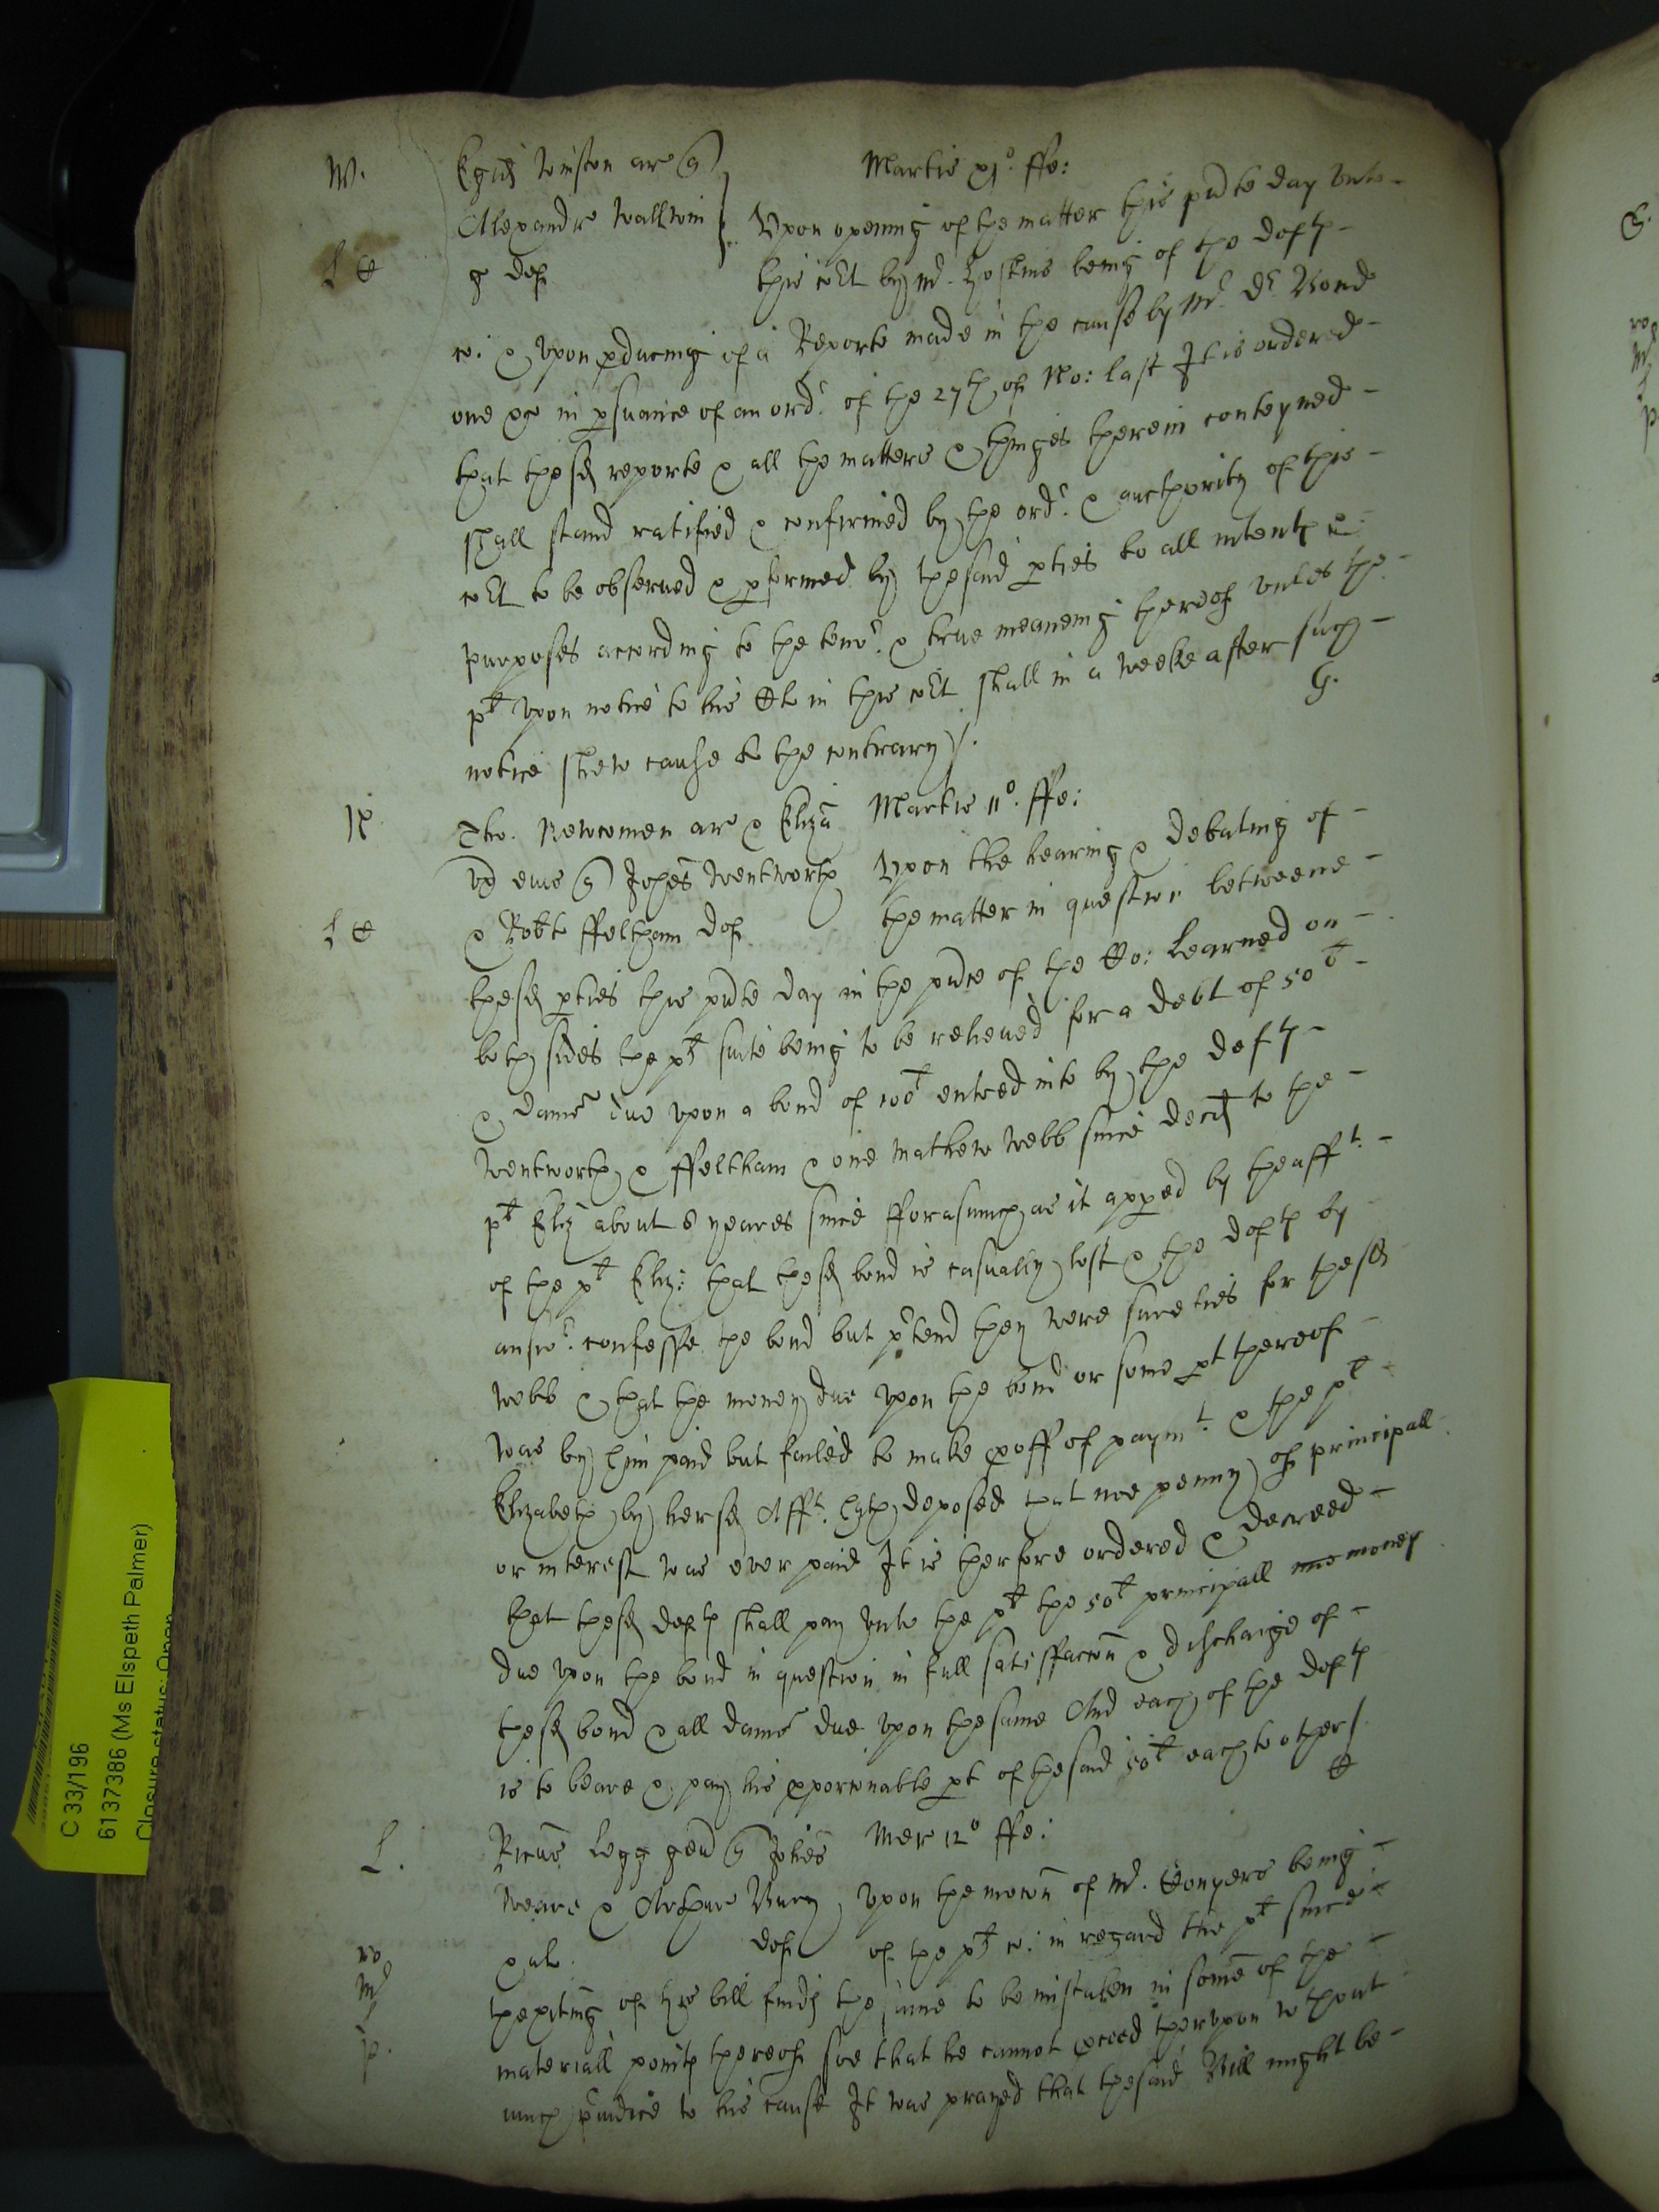 W. Egid Winston ar q Martis xj°. ffe:
Alexandr Wallwin } Upon opening of the matter this pnte day unto
L C g def this coᵗt by Mr. Hoskins being of the deftes
co: & upon pducing of a Reporte made in the cause by Mr. Dr. Bond
one &c in psuance of an ordr. of the 27th of No: last It is ordered
that the sd reporte & all the matters & things therein conteyned
shall stand ratified & confirmed by the ordr. & aucthority of this
coᵗt to be observed & pformed by the said pties to all intents &
purposes according to the tenor. & true meaneing thereof unles the
plt upon notice to his Clk in this coᵗt shall in a weeke after such
notice shew cause to the contrary /. G.
N Tho. Newcomen ar & Eliza Martis 11°. ffe:
ux eius q Johes Wentworth Upon the hearing & debating of
L C & Robte ffeltham def the matter in question betweene
the sd pties this pnte day in the pnce of the Co: learned on
both sides the plt suite being to be releived for a debt of 50l
& dam due upon a bond of 100l entred into by the deftes
Wentworth & ffeltham & one Mathew Webb since deced to the
plt Eliz about 8 yeares since fforasmuch as it appeared by the afft.
of the plt Eliz: that the sd bond is casually lost & the deftes by
answr. confesse the bond but ptend they were sureties for the sd
Webb & that the money due upon the bond or some pt thereof
was by him paid but failed to make proff of paymt. & the plt
Elizabeth by her sd Afft. hath deposed that noe penny of principall
or interest was ever paid It is therfore ordered & decreed
that the sd deftes shall pay unto the plt the 50l principall mo money
due upon the bond in question in full satisfaccon & discharge of
the sd bond & all dam due upon the same And each of the deftes
is to beare & pay his pporconable pt of the said 50l each to other /.
C
L. Ricus Legg gen q Johes Mer 12° ffe:
Weare & Arthur Bury Upon the mocon of Mr. Conyers being
& al def of the plt co: in regard the plt since
the exiting of his bill finds the same to be mistaken in some of the
materiall points thereof soe that he cannot pceed therupon wthout
much piudice to his cause It was prayed that the said Bill might be
C 33/196
6137386 (Ms Elspeth Palmer)
Closure status: Open